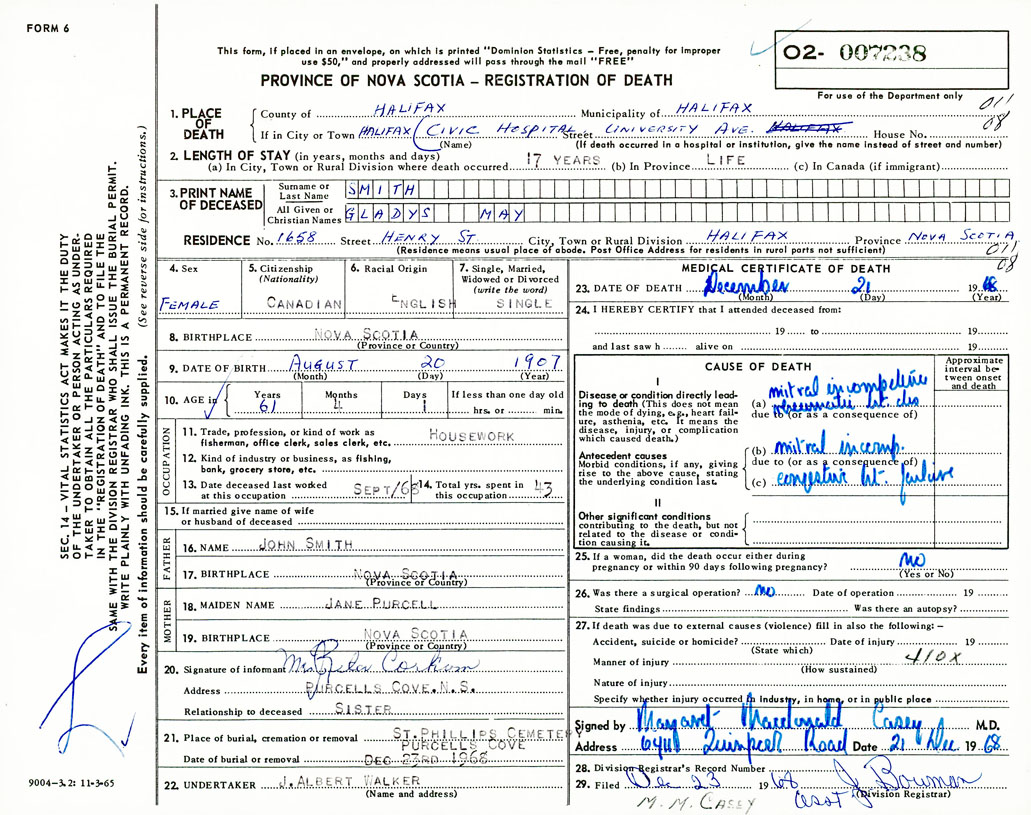 FORM 6
This form, if placed in an envelope, on which is printed "Dominion Statistics – Free, penalty for improper
use $50," and properly addressed will pass through the mail "FREE"
PROVINCE OF NOVA SCOTIA – REGISTRATION OF DEATH
02- 007238
For use of the Department only
011
08
1. PLACE OF DEATH
County of HALIFAX Municipality of HALIFAX
If in City or Town HALIFAX (CIVIC HOSPITAL Street UNIVERSITY AVE. HALIFAX House No.
(Name) (If death occurred in a hospital or institution, give the name instead of street and number)
2. LENGTH OF STAY (in years, months and days)
(a) In City, Town or Rural Division where death occurred 17 YEARS (b) In Province LIFE (c) In Canada (if immigrant)
3. PRINT NAME OF DECEASED
Surname or Last Name SMITH
All Given or Christian Names GLADYS MAY
RESIDENCE No. 1658 Street HENRY ST. City, Town or Rural Division HALIFAX Province NOVA SCOTIA
(Residence means usual place of abode. Post Office Address for residents in rural parts not sufficient)
011
08
4. Sex
FEMALE
5. Citizenship
(Nationality)
CANADIAN
6. Racial Origin
ENGLISH
7. Single, Married,
Widowed or Divorced
(write the word)
SINGLE
8. BIRTHPLACE NOVA SCOTIA
(Province or Country)
9. DATE OF BIRTH AUGUST 20 1907
(Month) (Day) (Year)
10. AGE in Years 61 Months 4 Days 1 If less than one day old
hrs. or min.
OCCUPATION
11. Trade, profession, or kind of work as
fisherman, office clerk, sales clerk, etc. HOUSEWORK
12. Kind of industry or business, as fishing,
bank, grocery store, etc.
13. Date deceased last worked
at this occupation SEPT/68
14. Total yrs. spent in
this occupation 43
15. If married give name of wife
or husband of deceased
FATHER
16. NAME JOHN SMITH
17. BIRTHPLACE NOVA SCOTIA
(Province or Country)
MOTHER
18. MAIDEN NAME JANE PURCELL
19. BIRTHPLACE NOVA SCOTIA
(Province or Country)
20. Signature of informant Mrs Rita Corkum
Address PURCELLS COVE. N.S.
Relationship to deceased SISTER
21. Place of burial, cremation or removal ST. PHILLIPS CEMETER
PURCELLS COVE
Date of burial or removal DEC 23RD 1968
22. UNDERTAKER J. ALBERT WALKER
(Name and address)
MEDICAL CERTIFICATE OF DEATH
23. DATE OF DEATH December 21 1968
(Month) (Day) (Year)
24. I HEREBY CERTIFY that I attended deceased from:
19 to 19
and last saw h alive on 19
CAUSE OF DEATH
Approximate interval between onset and death
I
Disease or condition directly leading to death (This does not mean the mode of dying, e.g., heart failure, asthenia, etc. It means the disease, injury, or complication which caused death.)
(a) mitral incompetence
rheumatic ht. dis.
due to (or as a consequence of)
Antecedent causes
Morbid conditions, if any, giving rise to the above cause, stating the underlying condition last.
(b) mitral incomp.
due to (or as a consequence of)
(c) congestive ht. failure
II
Other significant conditions
contributing to the death, but not related to the disease or condition causing it.
25. If a woman, did the death occur either during
pregnancy or within 90 days following pregnancy? NO
(Yes or No)
26. Was there a surgical operation? no Date of operation 19
State findings Was there an autopsy?
27. If death was due to external causes (violence) fill in also the following: –
Accident, suicide or homicide? Date of injury 19
(State which)
Manner of injury 410X
(How sustained)
Nature of injury
Specify whether injury occurred in industry, in home, or in public place
Signed by Margaret Macdonald Casey M.D.
Address 6411 Quinpool Road Date 21 Dec 1968
28. Division Registrar's Record Number
29. Filed Dec 23 1968 J. Bowman
(Division Registrar)
M. M. CASEY
SEC. 14 – VITAL STATISTICS ACT MAKES IT THE DUTY
OF THE UNDERTAKER OR PERSON ACTING AS UNDER-
TAKER TO OBTAIN ALL THE PARTICULARS REQUIRED
IN THE "REGISTRATION OF DEATH" AND TO FILE THE
SAME WITH THE DIVISION REGISTRAR WHO SHALL ISSUE THE BURIAL PERMIT.
WRITE PLAINLY WITH UNFADING INK. THIS IS A PERMANENT RECORD.
Every item of information should be carefully supplied. (See reverse side for instructions.)
9004–3.2: 11-3-65